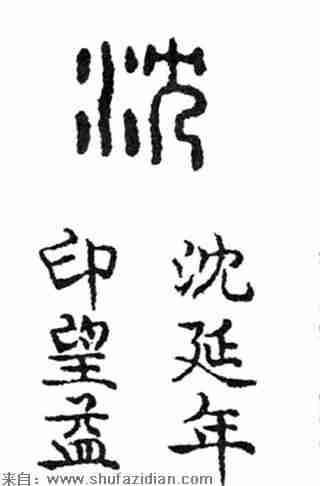 沈
沈延年
印望益
来自：www.shufazidian.com